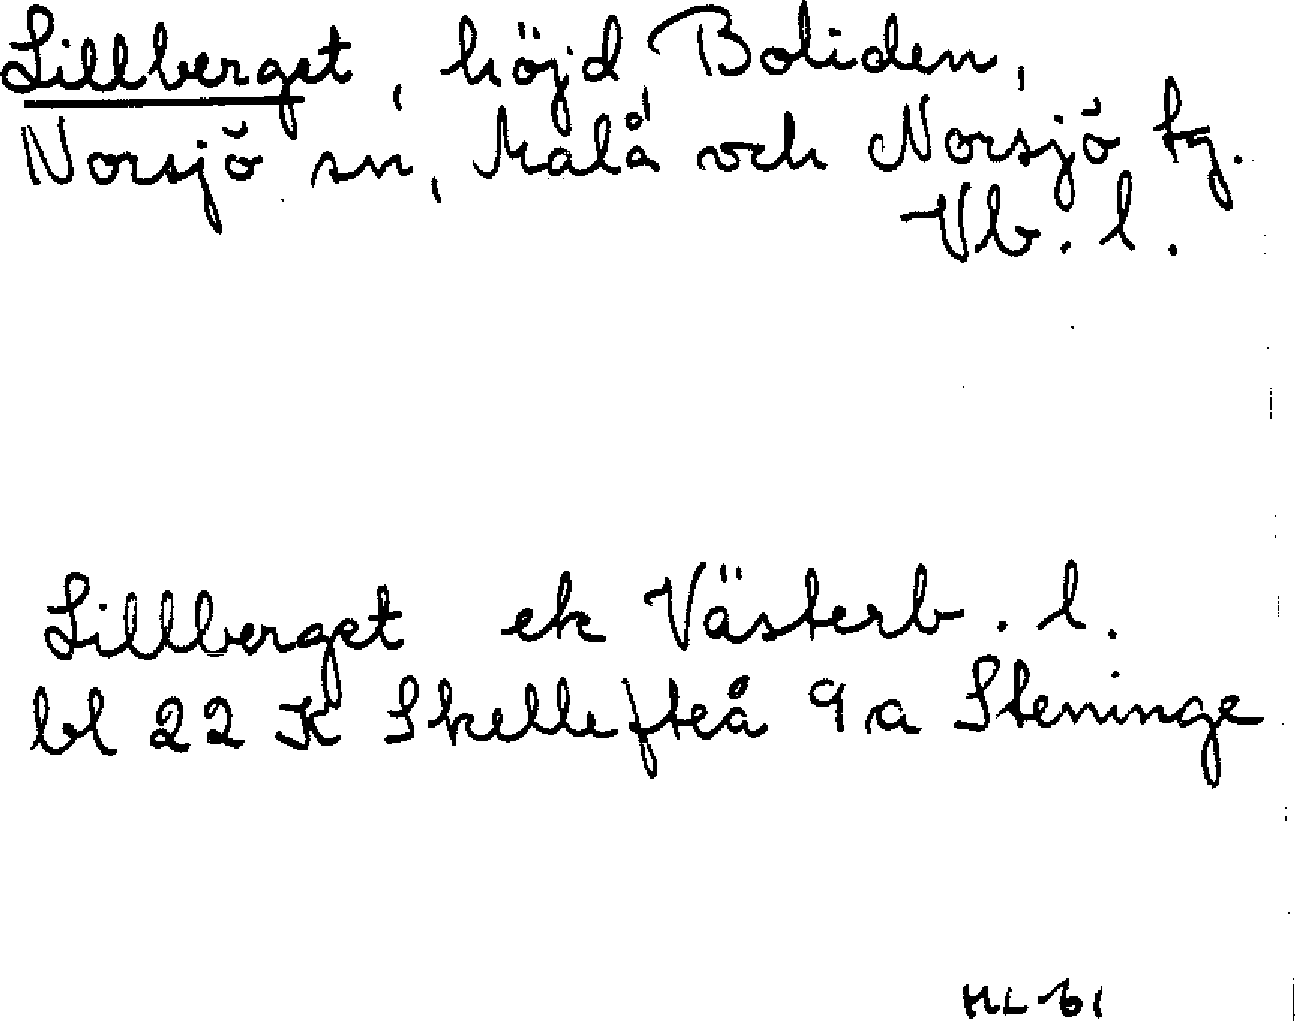 Lillberget, höjd, Boliden,
Norsjö sn, Malå och Norsjö tg.
Vb. l.
Lillberget ek Västerb. l.
bl 22 K Skellefteå 9 a Steninge
HL -61